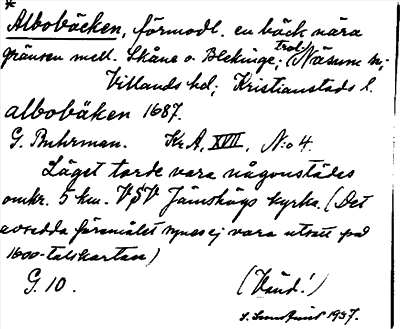 *
Albobäcken, förmodl. en bäck nära
gränsen mell. Skåne o. Blekinge; trol. i Näsum sn;
Villands hd; Kristianstads l.
albobäken 1687.
G. Buhrman. Kr A, XVII, N:o 4.
Läget torde vara någonstädes
omkr. 5 km. VSV Jämshögs kyrka. (Det
avsedda föremålet synes ej vara utsatt på
1600-talskartan)
G. 10. (Vänd!)
1937.